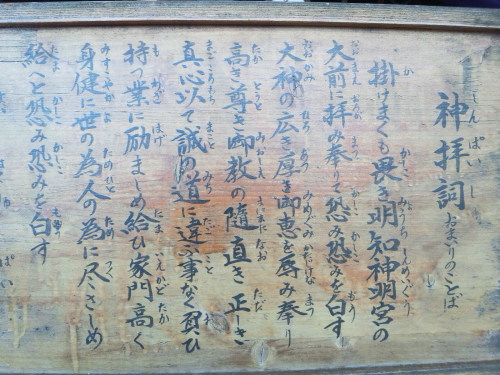 神拝詞 おまいりのことば
掛けまくも畏き明知神明宮の
大前に拝み奉りて恐み恐みを白す
大神の広き厚き御恵を辱み奉り
高き尊き御教の随直き正しき
真心以て誠の道に違ふ事なく負ひ
持つ業に励ましめ給ひ家門高く
身健に世の為人の為に尽さしめ
給へと恐み恐みを白す